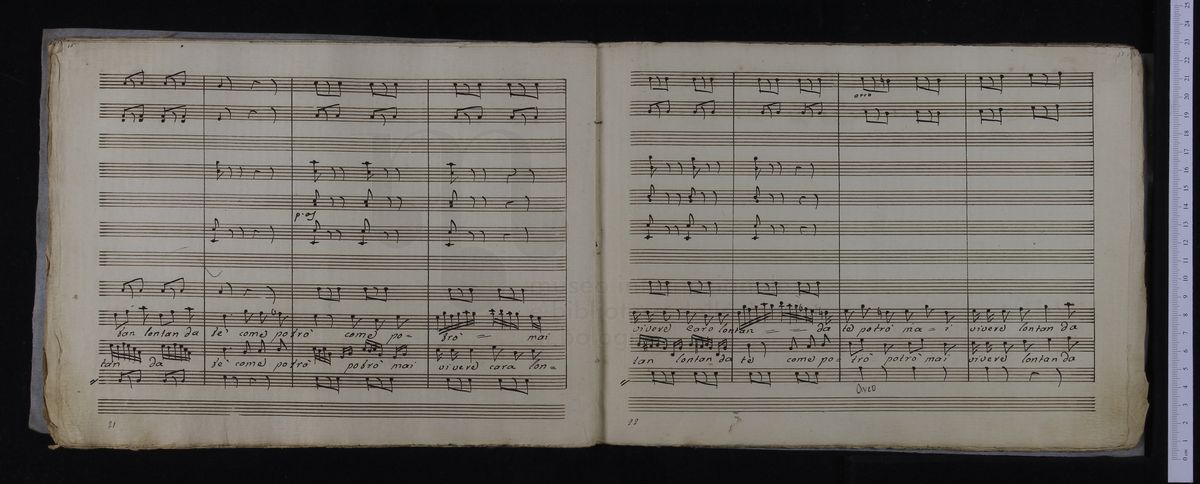 p:os
lan lontan da te come potrò come po= trò = mai
tan da te come potrò potrò mai vivere cara lon=
21
arco
vivere caro lontan = = da te potrò ma = i vivere lontan da
tan lontan da te come po= trò potrò mai vivere lontan da
Arco